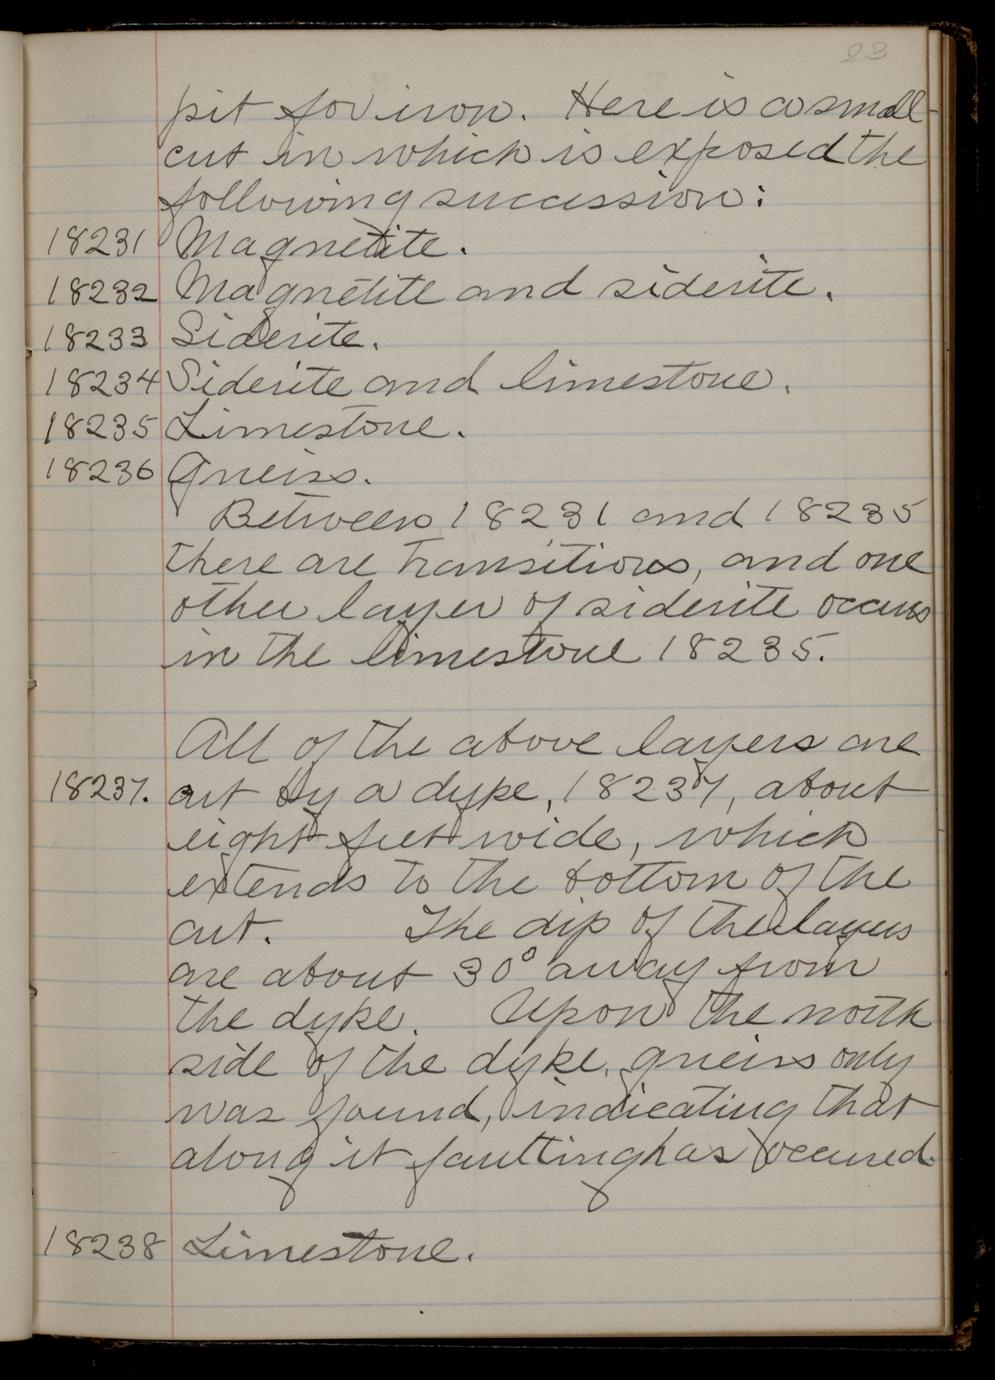 23
pit for iron. Here is a small
cut in which is exposed the
following succession:
18231 Magnetite.
18232 Magnetite and siderite.
18233 Siderite.
18234 Siderite and limestone.
18235 Limestone.
18236 Gneiss.
Between 18231 and 18235
there are transitions, and one
other layer of siderite occurs
in the limestone 18235.
All of the above layers are
18237. cut by a dyke, 18237, about
eight feet wide, which
extends to the bottom of the
cut. The dip of the layers
are about 30° away from
the dyke. Upon the north
side of the dyke, gneiss only
was found, indicating that
along it faulting has occured.
18238 Limestone.